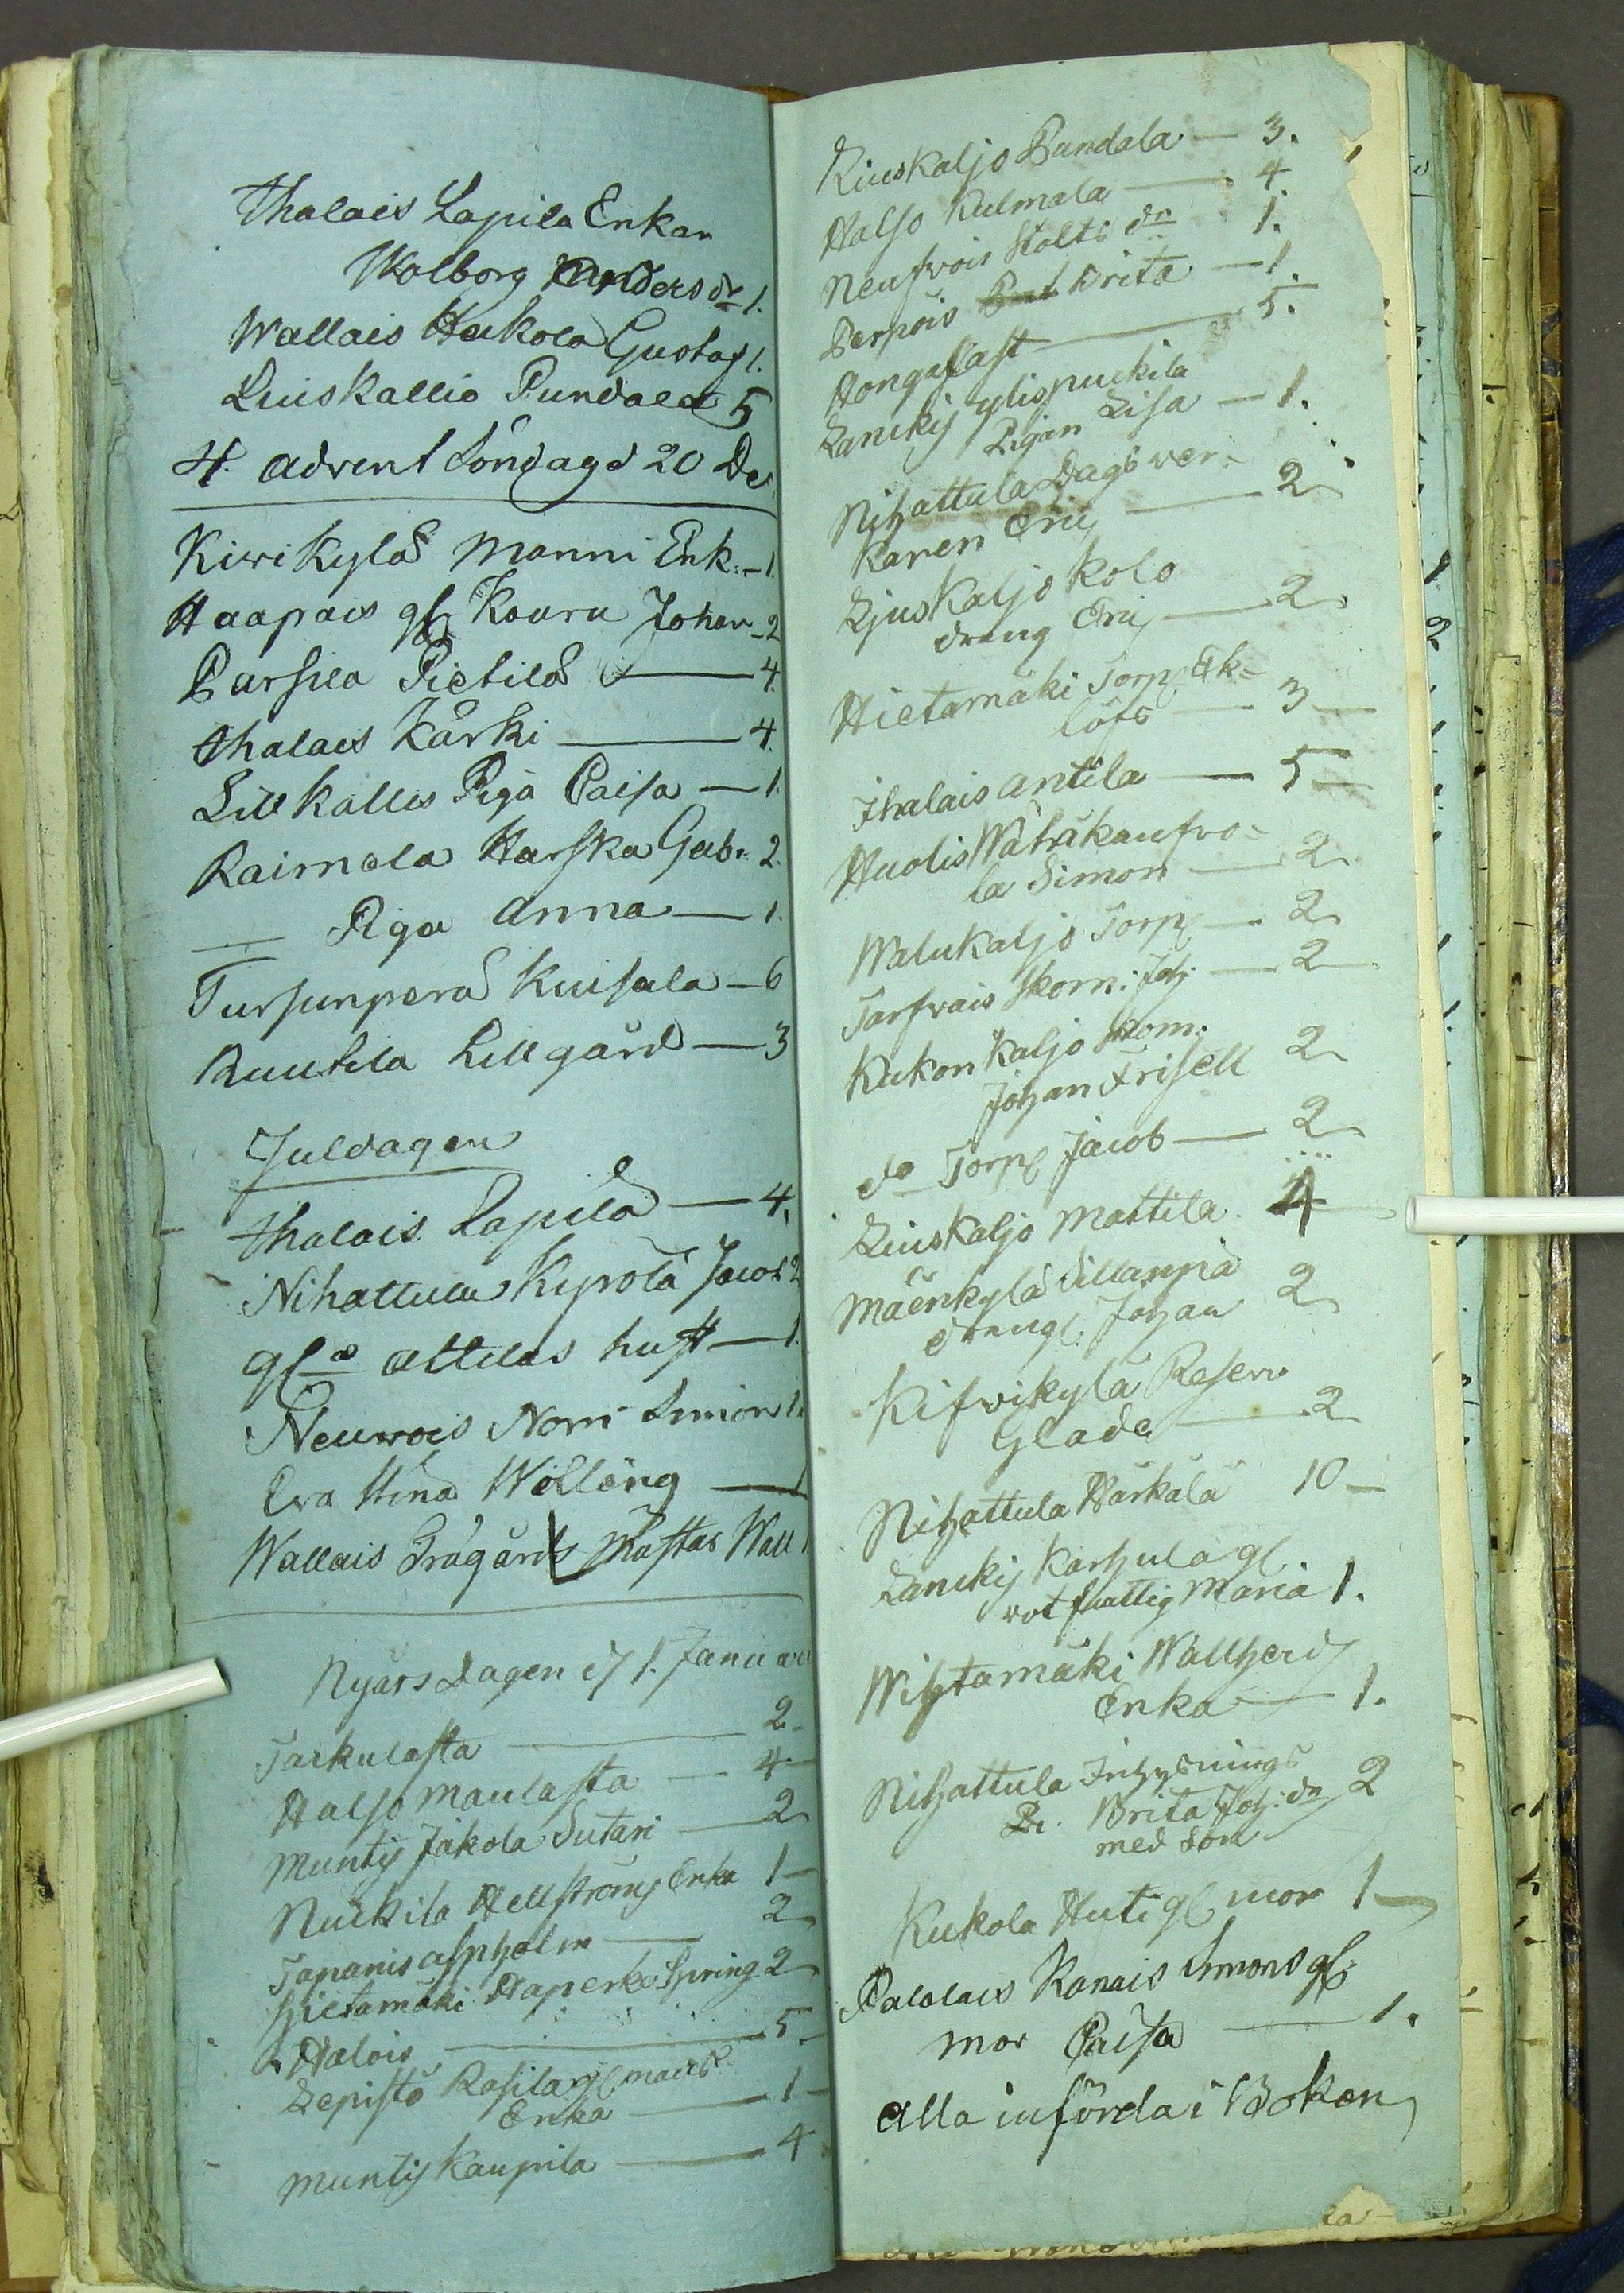 Ihalais Lapila Enkan
Walborg Andersdr 1.
Wallais Heikola Gustaf 1.
Liuskallio Pundala 5
4. advent Söndagd 20 De
Kiwikylä Manni Enk. - 1.
Haapais gl Kouru Johan - 2
Parsila Pietilä — 4.
Ihalais Kärki — 4.
Lill Kallis Piga Caisa — 1.
Raimela Harska Gab. 2.
Piga Anna — 1.
Tursunperä Kuisala - 6
Ruutila Lillgård — 3
Juldagen
Ihalais Lapila — 4.
Nihattula Kyrölä Jacob 2
gl attilas hust — 1.
Neuwois Norri Simon 1.
Eva Stina Wälläng — 1
Wallais Trägårds Mästar Wall 1
Nyårs Dagen d 1. Januari
Tarkulasta — 2 -
Halso Maulasta — 4 -
Munti Jakola Sutari — 2
Nuckila Hellströms Enka 1 -
Tapanis Aspholm — 2
Hietamäki Haperko Spring 2
Halois — 5 -
Lepistö Rasila gl mans
Enka — 1 -
Munti Kaupila — 4
Liuskaljo Pundala — 3.
Halso Kulmala — 4.
Neufwois Stolts dr 1.
Perhois Brita — 1.
Hongasast — 5.
Lanckij ylispuckila
Pigan Lisa — 1.
Nihattula Dagswer-
karen Eric — 2
Ljuskaljo Kolo
dreng Eric — 2
Hietamäki Torp Ek-
löfs — 3 —
Ihalais Antila — 5 —
Huolis Wähäkaufwo-
la Simon — 2
Walukaljo Torp — 2
Tarfwais Skom: Joh — 2
Kukonkaljo Skom:
Johan Frisell 2
do Torp Jacob — 2
Liuskaljo Mattila 4
Mäenkylä Sillanpä
dreng Johan 2
Kifwikylä Reserv
Glade — 2
Nihattula Härkälä 10 —
Lanckij Karhula gl
rotfhattig Maria 1.
Wihtamäki Wallheri
Enka — 1.
Nihattula Inhysnings
Pi. Brita Joh: dr 2
med Son
Kukola Huti gl mor 1 —
Palolais Kanais Simons gl
mor Caisa — 1.
alla införda i Boken